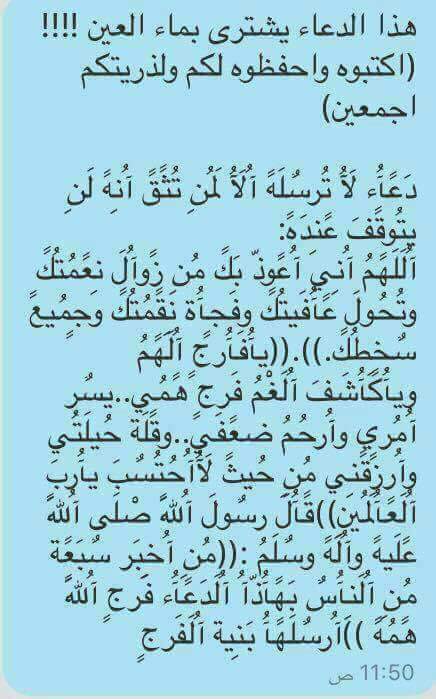 هذا الدعاء يشترى بماء العين !!!!
(اكتبوه واحفظوه لكم ولذريتكم
اجمعين)
دَعًأُء لَأُ تُرسُلَهً أُلَأُ لَمُنِ تُثًقً أُنِهً لَنِ
يتُوقًفَ عًندَهً:
أُلَلَهًمُ أُنِيَ أُعًوذّ بَكً مُن زًوأُلَ نِعًمُتُكً
وتُحُولَ عًأُفَيتُكً وفَجأُة نِقًمُتُكً وَجمُيعً
سُخطُكً.)).((يأُفَأُرجً أُلَهًمُ
ويأُكًأُشَفَ أُلَغْمُ فَرجً هًمُي..يسُر
أُمُري وأُرحُمُ ضعًفَيَ..وقًلَة حُيلَتُي
وأُرزًقًني مُنِ حُيثً لَأُأُحُتُسُبَ يأُربَ
أُلَعًأُلَمُينِ))قًأُلَ رسُولَ أُلَلَهً صْلَى أُلَلَهً
عًلَيهً وألَهً وسُلَمُ :((مُنِ أُخبَر سُبَعًة
مُن أُلَنأُسُ بَهًأُذّأُ أُلَدَعًأُء فَرجً أُلَلَهً
هًمُهً ))أُرسُلَهًأُ بَنِية أُلَفَرجً
11:50 ص